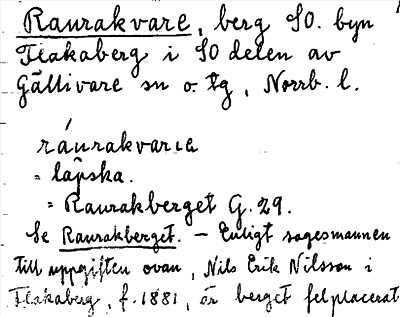 Raurakvare, berg SO. byn
Flakaberg i SO delen av
Gällivare sn o. tg, Norrb. l.
ráurakvarɛa
= lapska.
= Raurakberget G. 29.
Se Raurakberget. – Enligt sagesmannen
till uppgiften ovan, Nils Erik Nilsson i
Flakaberg, f. 1881, är berget felplacerat